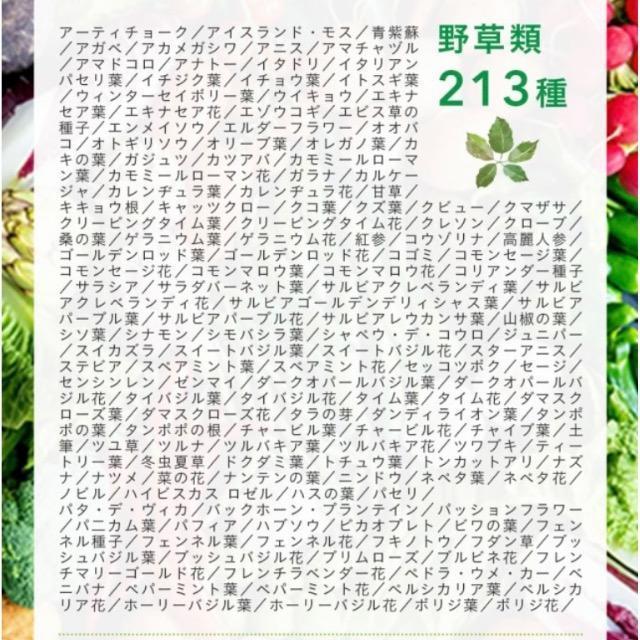 野草類
213種
アーティチョーク／アイスランド・モス／青紫蘇
／アガベ／アカメガシワ／アニス／アマチャヅル
／アマドコロ／アナトー／イタドリ／イタリアン
パセリ葉／イチジク葉／イチョウ葉／イトスギ葉
／ウィンターセイボリー葉／ウイキョウ／エキナ
セア葉／エキナセア花／エゾウコギ／エビス草の
種子／エンメイソウ／エルダーフラワー／オオバ
コ／オトギリソウ／オリーブ葉／オレガノ葉／カ
キの葉／ガジュツ／カツアバ／カモミールローマ
ン葉／カモミールローマン花／ガラナ／カルケー
ジャ／カレンヂュラ葉／カレンヂュラ花／甘草／
キキョウ根／キャッツクロー／クコ葉／クズ葉／クビュー／クマザサ／
クリーピングタイム葉／クリーピングタイム花／クレソン／クローブ／
桑の葉／ゲラニウム葉／ゲラニウム花／紅参／コウゾリナ／高麗人参／
ゴールデンロッド葉／ゴールデンロッド花／コゴミ／コモンセージ葉／
コモンセージ花／コモンマロウ葉／コモンマロウ花／コリアンダー種子
／サラシア／サラダバーネット葉／サルビアクレベランディ葉／サルビ
アクレベランディ花／サルビアゴールデンデリィシャス葉／サルビア
パープル葉／サルビアパープル花／サルビアレウカンサ葉／山椒の葉／
シソ葉／シナモン／シモバシラ葉／シャペウ・デ・コウロ／ジュニパー
／スイカズラ／スイートバジル葉／スイートバジル花／スターアニス／
ステビア／スペアミント葉／スペアミント花／セッコツボク／セージ／
センシンレン／ゼンマイ／ダークオパールバジル葉／ダークオパールバ
ジル花／タイバジル葉／タイバジル花／タイム葉／タイム花／ダマスク
ローズ葉／ダマスクローズ花／タラの芽／ダンディライオン葉／タンポ
ポの葉／タンポポの根／チャービル葉／チャービル花／チャイブ葉／土
筆／ツユ草／ツルナ／ツルバキア葉／ツルバキア花／ツワブキ／ティー
トリー葉／冬虫夏草／ドクダミ葉／トチュウ葉／トンカットアリ／ナズ
ナ／ナツメ／菜の花／ナンテンの葉／ニンドウ／ネペタ葉／ネペタ花／
ノビル／ハイビスカス ロゼル／ハスの葉／パセリ／
パタ・デ・ヴィカ／バックホーン・プランテイン／パッションフラワー
／パニカム葉／パフィア／ハブソウ／ピカオプレト／ビワの葉／フェン
ネル種子／フェンネル葉／フェンネル花／フキノトウ／フダン草／ブッ
シュバジル葉／ブッシュバジル花／プリムローズ／ブルビネ花／フレン
チマリーゴールド花／フレンチラベンダー花／ペドラ・ウメ・カー／ベ
ニバナ／ペパーミント葉／ペパーミント花／ペルシカリア葉／ペルシカ
リア花／ホーリーバジル葉／ホーリーバジル花／ボリジ葉／ボリジ花／